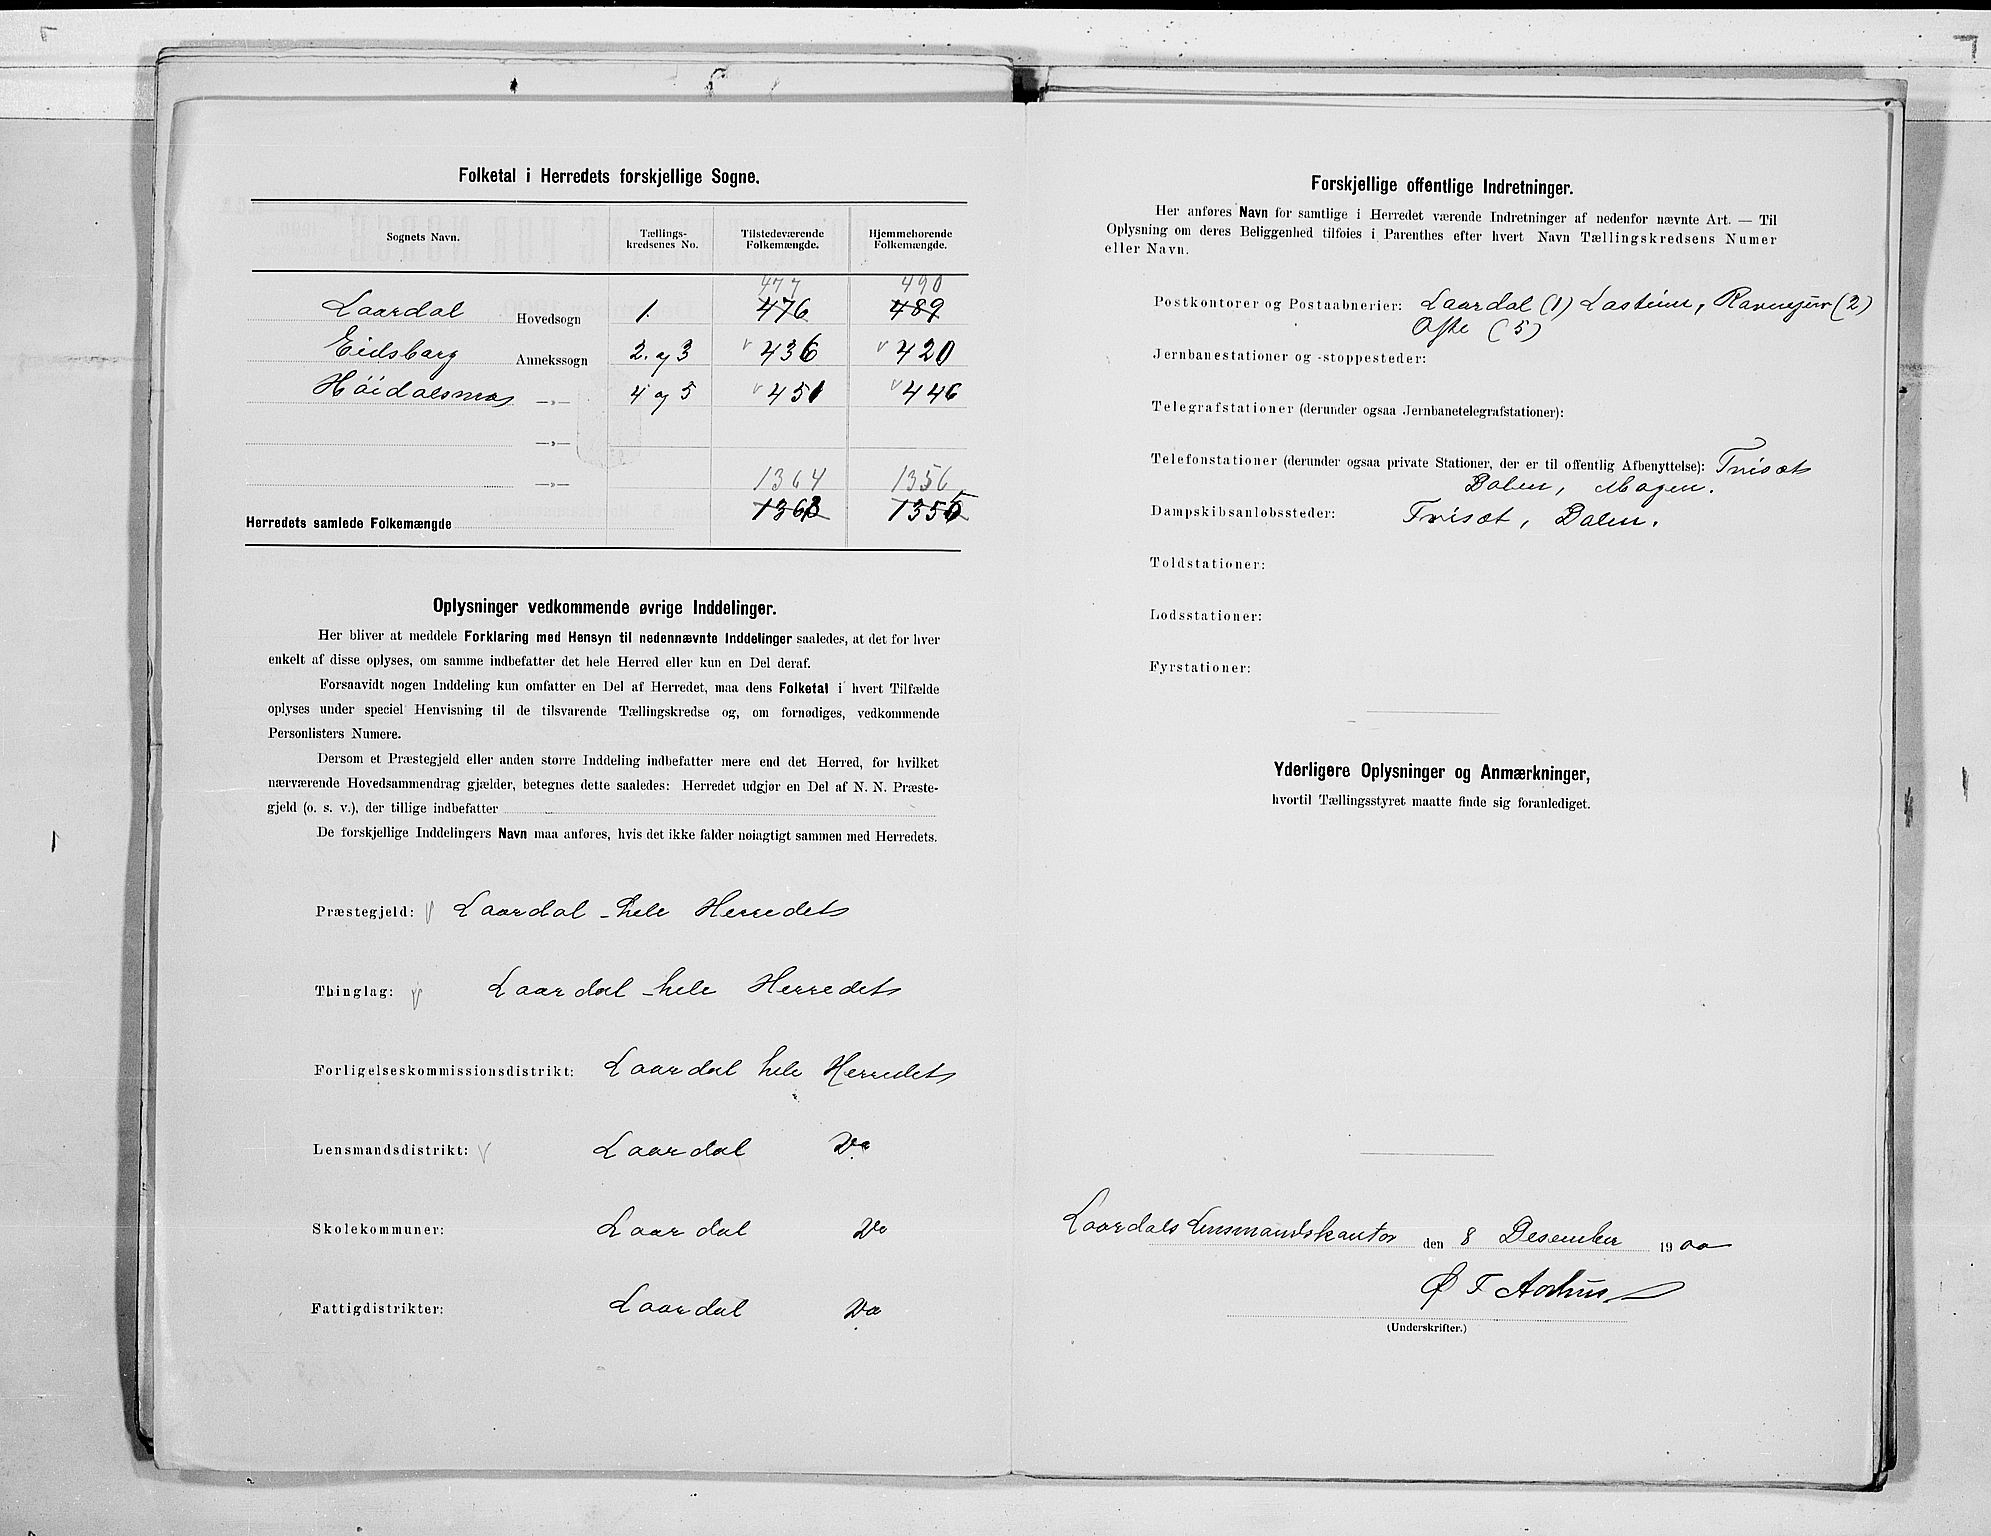 Folketal i Herredets forskjellige Sogne.
Sognets Navn. Tællings- Tilstedeværende Hjemmehørende
kredsenes No. Folkemængde. Folkemængde.
477 490
Laardal Hovedsogn 1. 476 489
Eidsborg Annekssogn 2. og 3 v 436 v 420
Høidalsmo —»— 4 og 5 v 451 v 446
—»—
—»— 1364 1356
Herredets samlede Folkemængde 1363 1355
Oplysninger vedkommende øvrige Inddelinger.
Her bliver at meddele Forklaring med Hensyn til nedennævnte Inddelinger saaledes, at det for hver
enkelt af disse oplyses, om samme indbefatter det hele Herred eller kun en Del deraf.
Forsaavidt nogen Inddeling kun omfatter en Del af Herredet, maa dens Folketal i hvert Tilfælde
oplyses under speciel Henvisning til de tilsvarende Tællingskredse og, om fornødiges, vedkommende
Personlisters Numere.
Dersom et Præstegjeld eller anden større Inddeling indbefatter mere end det Herred, for hvilket
nærværende Hovedsammendrag gjælder, betegnes dette saaledes: Herredet udgjør en Del af N. N. Præste-
gjeld (o. s. v.), der tillige indbefatter
De forskjellige Inddelingers Navn maa anføres, hvis det ikke falder nøiagtigt sammen med Herredets.
Præstegjeld: v Laardal - hele Herredet
Thinglag: v Laardal - hele Herredet
Forligelseskommissionsdistrikt: Laardal hele Herredet
Lensmandsdistrikt: v Laardal Do
Skolekommuner: Laardal Do
Fattigdistrikter: Laardal Do
Forskjellige offentlige Indretninger.
Her anføres Navn for samtlige i Herredet værende Indretninger af nedenfor nævnte Art. — Til
Oplysning om deres Beliggenhed tilføies i Parenthes efter hvert Navn Tællingskredsens Numer
eller Navn.
Postkontorer og Postaabnerier: Laardal (1) Lastein, Ravnejuv (2)
Ofte (5)
Jernbanestationer og -stoppesteder:
Telegrafstationer (derunder ogsaa Jernbanetelegrafstationer):
Telefonstationer (derunder ogsaa private Stationer, der er til offentlig Afbenyttelse): Trisæt
Dalen, Mogen.
Dampskibsanløbssteder: Trisæt, Dalen.
Toldstationer:
Lodsstationer:
Fyrstationer:
Yderligere Oplysninger og Anmærkninger,
hvortil Tællingsstyret maatte finde sig foranlediget.
Laardals Lensmandskontor den 8 Desember 1900
Ø T Aarhus
(Underskrifter.)